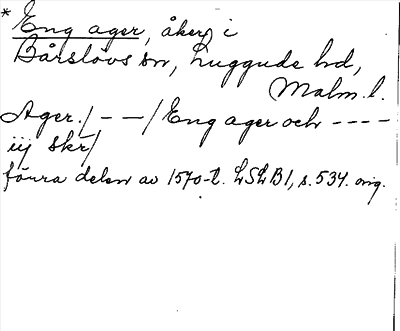 * Eng ager, åker i
Bårslövs sn, Luggude hd,
Malm. l.
Ager./ - - -/ Eng ager och - - - -
iij skr/
förra delen av 1570-t. LSLB1, s. 534. orig.